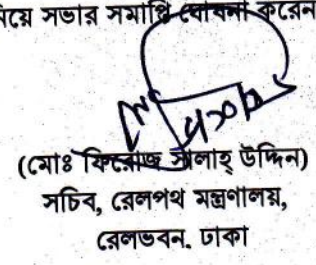 িয়ে সভার সমাপ্তি ঘোষনা করেন
(মোঃ ফিরোজ সালাহ্ উদ্দিন)
সচিব, রেলপথ মন্ত্রণালয়,
রেলভবন, ঢাকা